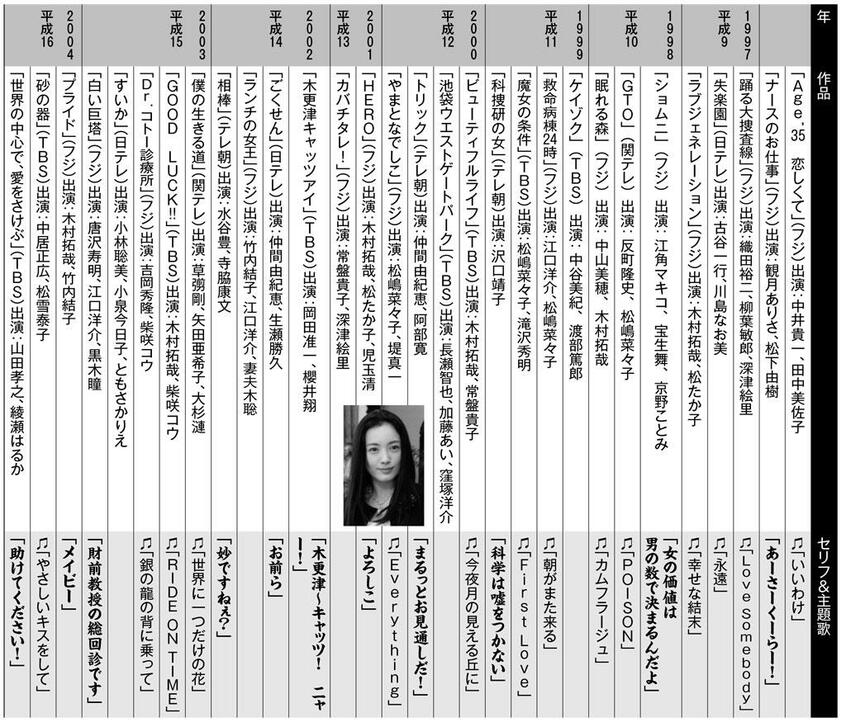 年
作品
セリフ&主題歌
1997
平成9
「Age,35 恋しくて」(フジ)出演:中井貴一、田中美佐子
♫「いいわけ」
「ナースのお仕事」(フジ)出演:観月ありさ、松下由樹
「あーさーくーらー!」
「踊る大捜査線」(フジ)出演:織田裕二、柳葉敏郎、深津絵里
♫「Love Somebody」
「失楽園」(日テレ)出演:古谷一行、川島なお美
♫「永遠」
「ラブジェネレーション」(フジ)出演:木村拓哉、松たか子
♫「幸せな結末」
1998
平成10
「ショムニ」(フジ) 出演:江角マキコ、宝生舞、京野ことみ
「女の価値は
男の数で決まるんだよ」
「GTO」(関テレ) 出演:反町隆史、松嶋菜々子
♫「POISON」
「眠れる森」(フジ) 出演:中山美穂、木村拓哉
♫「カムフラージュ」
1999
平成11
「ケイゾク」(TBS) 出演:中谷美紀、渡部篤郎
「救命病棟24時」(フジ)出演:江口洋介、松嶋菜々子
♫「朝がまた来る」
「魔女の条件」(TBS)出演:松嶋菜々子、滝沢秀明
♫「First Love」
「科捜研の女」(テレ朝)出演:沢口靖子
「科学は嘘をつかない」
2000
平成12
「ビューティフルライフ」(TBS)出演:木村拓哉、常盤貴子
♫「今夜月の見える丘に」
「池袋ウエストゲートパーク」(TBS)出演:長瀬智也、加藤あい、窪塚洋介
「トリック」(テレ朝)出演:仲間由紀恵、阿部寛
「まるっとお見通しだ!」
「やまとなでしこ」(フジ)出演:松嶋菜々子、堤真一
♫「Everything」
2001
平成13
「HERO」(フジ)出演:木村拓哉、松たか子、児玉清
「よろしこ」
「カバチタレ!」(フジ)出演:常盤貴子、深津絵里
2002
平成14
「木更津キャッツアイ」(TBS)出演:岡田准一、櫻井翔
「木更津〜キャッツ! ニャ
ー!」
「ごくせん」(日テレ)出演:仲間由紀恵、生瀬勝久
「お前ら」
「ランチの女王」(フジ)出演:竹内結子、江口洋介、妻夫木聡
「相棒」(テレ朝)出演:水谷豊、寺脇康文
「妙ですねぇ?」
2003
平成15
「僕の生きる道」(関テレ)出演:草彅剛、矢田亜希子、大杉漣
♫「世界に一つだけの花」
「GOOD LUCK!!」(TBS)出演:木村拓哉、柴咲コウ
♫「RIDE ON TIME」
「Dr.コトー診療所」(フジ)出演:吉岡秀隆、柴咲コウ
♫「銀の龍の背に乗って」
「すいか」(日テレ)出演:小林聡美、小泉今日子、ともさかりえ
「白い巨塔」(フジ)出演:唐沢寿明、江口洋介、黒木瞳
「財前教授の総回診です」
2004
平成16
「プライド」(フジ)出演:木村拓哉、竹内結子
「メイビー」
「砂の器」(TBS)出演:中居正広、松雪泰子
♫「やさしいキスをして」
「世界の中心で、愛をさけぶ」(TBS)出演:山田孝之、綾瀬はるか
「助けてください!」